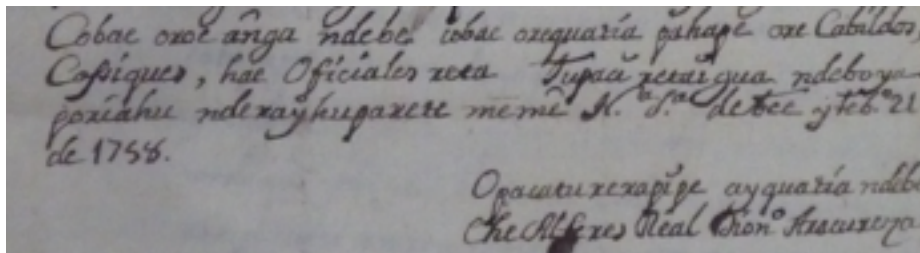 Cobae oroe ânga ndebe cobae orequatía pahape ore Cabildos,
Casiques, hae Oficiales reta Tupaû retaîgua ndeboya
poriahu nderaŷhuparete memê N.ª S.ª de Feê y feb.º 28
de 1758.
Opacaturerapîpe ayquatía ndebe
Che Alferes Real Dion.º